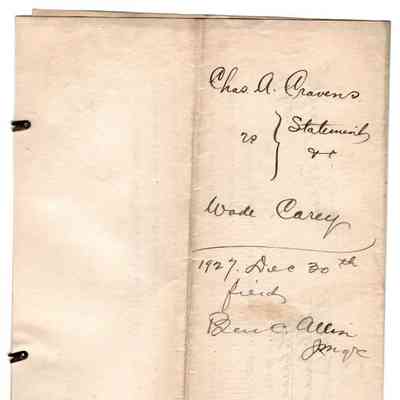 Chas. A. Cravens
vs } Statement
&c
Wade Carey
1927. Dec 30th
filed
Ben C. Allin